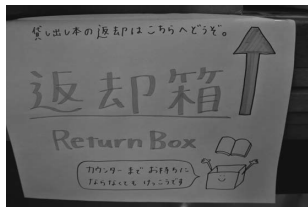 貸し出し本の返却はこちらへどうぞ。
返却箱
Return Box
カウンターまでお持ちに
ならなくてもけっこうです